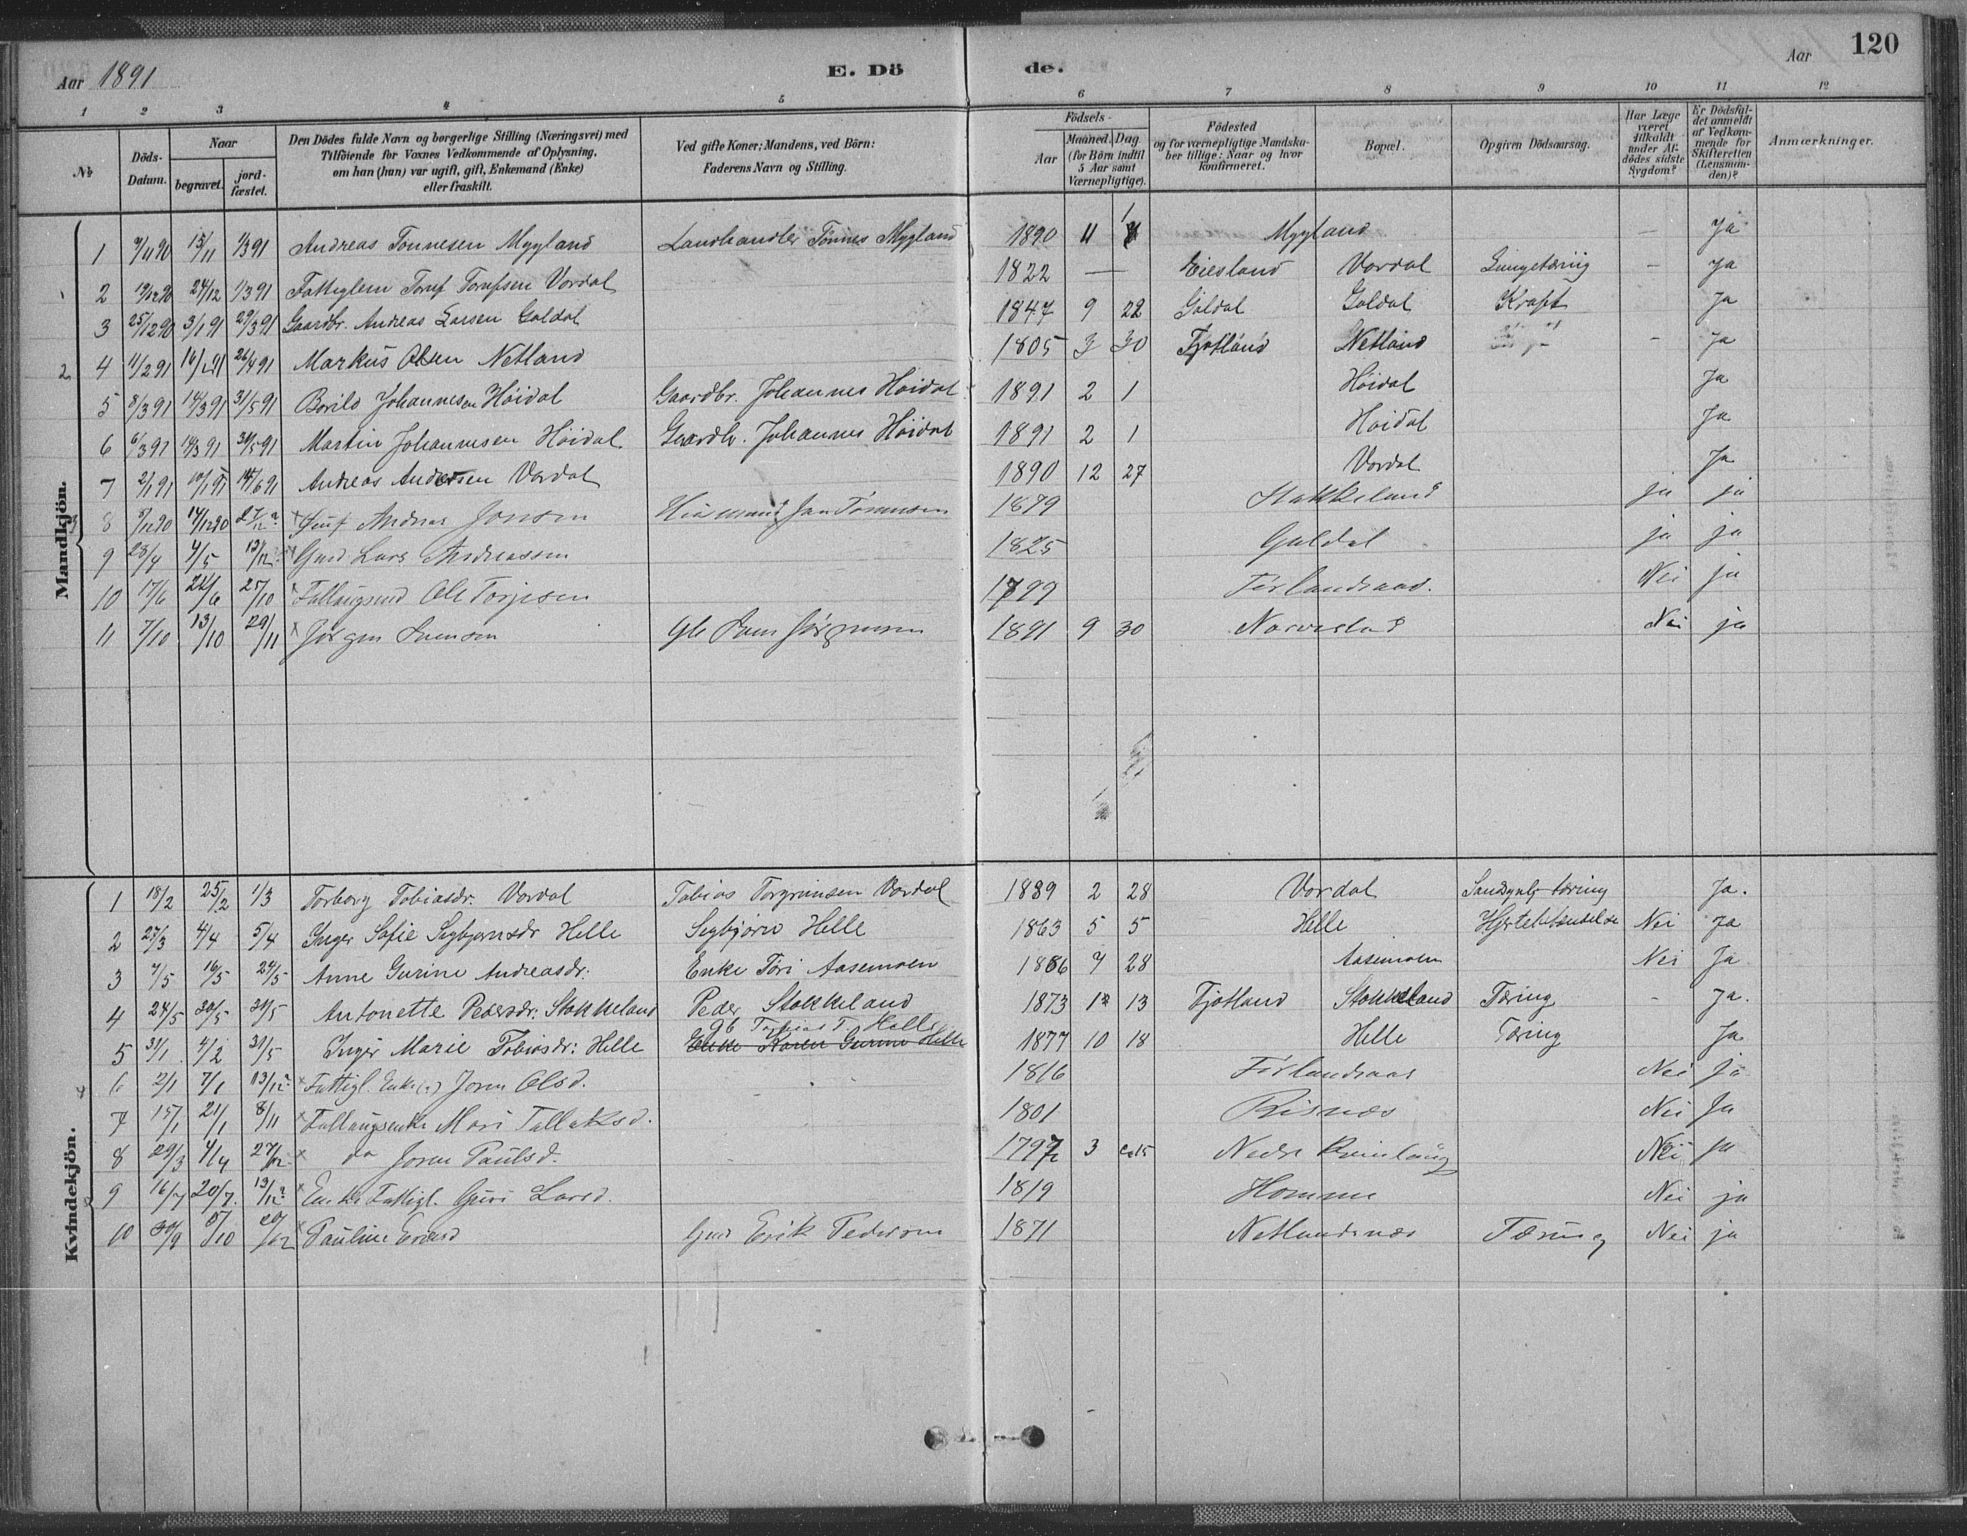 Aar 1891
E. Dö
de.
Aar
120
1 2 3 4 5 6 7 8 9 10 11 12
No
Döds-Datum.
Naar
begravet.
jord-fæstet.
Den Dödes fulde Navn og borgerlige Stilling (Næringsvei) med
Tilföiende for Voxnes Vedkommende af Oplysning,
om han (hun) var ugift, gift, Enkemand (Enke)
eller fraskilt.
Ved gifte Koner: Mandens, ved Börn:
Faderens Navn og Stilling.
Födsels-
Aar
Maaned. Dag
(for Börn indtil
5 Aar samt
Værnepligtige).
Födested
og for værnepligtige Mandska-
ber tillige: Naar og hvor
konfirmeret.
Bopæl.
Opgiven Dödsaarsag.
Har Læge
været
tilkaldt
under Af-
dödes sidste
Sygdom?
Er Dödsfal-
det anmeldt
af Vedkom-
mende for
Skifteretten
(Lensman-
den)?
Anmærkninger.
Mandkjön.
1 15/11 1/3 91 Andreas Tønnesen Mygland Landhandler Tønnes Mygland 1890 11 Mygland — Ja
2 19/12 90 24/12 1/3 91 Fattiglem Vordal 1822 — Eiesland Vordal Lungetæring — Ja
3 25/12 90 3/1 91 29/3 91 Gaardbr. Andreas Larsen Goldal 1847 9 22 Goldal Goldal Kræft Ja
4 26/4 91 Markus Olsen Netland 1805 3 30 Fjotland Netland - Ja
5 8/3 91 14/3 91 31/5 91 Borild Johannesen Höidal Gaardbr. Johannes Höidal 1891 2 1 Höidal Ja
6 6/3 91 14/3 91 31/5 91 Martin Johannesen Höidal Gaardbr. Johannes Höidal 1891 2 1 Höidal Ja
7 2/1 91 10/1 91 14/6 91 Andreas Andersen Vordal 1890 12 27 Vordal Ja
8 14/12 90 Andreas Jonsen 1879 Stakkeland ja ja
9 28/4 4/5 13/12 × Gmd Lars Andreassen 1825 Guldal ja ja
10 17/6 24/6 25/10 × Ole Torjesen 1799 Førlandsaas. Nei ja
11 7/10 13/10 29/11 × Jørgen Svensen 1891 9 30 Narvestad Nei ja
Kvindekjön.
1 18/2 25/2 1/3 Torborg Tobiasdr. Vordal Tobias Torgrimsen Vordal 1889 2 28 Vordal Ja.
2 27/3 4/4 5/4 Inger Sofie Segbjørnsdr Helle Segbjørn Helle 1863 5 5 Helle Hjertebetændelse Nei Ja
3 7/5 16/5 24/5 Anne Gurine Andreasdr: Enke Tøri Aasemoen 1886 7 28 Aasemoen Nei Ja
4 24/5 30/5 31/5 Antonette Pedersdr: Stokkeland Peder Stokkeland 1873 12 13 Fjotland Stokkeland Tæring - Ja.
Gb Tobias T. Helle
5 31/1 4/2 31/5 Inger Marie Tobiasdr: Helle Enke Karen Gurine Helle 1877 10 18 Helle Tæring Ja
6 2/1 7/1 13/12 × Fattigl. Enke(?) Joren Olsd. 1816 Førlandsaas Nei Ja
7 15/1 21/1 8/11 × Mari Tallaksd. 1801 Risnæs Nei Ja
8 29/3 4/4 27/12 × do Joren Paulsd. 1797 3 Nedre Nei ja
9 16/7 20/7 13/12 × Enke Fattigl. Guri Larsd. 1819 Homme Nei ja
10 30/9 5/10 20/12 × Pauline Gmd Erik Pedersen 1871 Netlandsnæs Tæring Nei ja